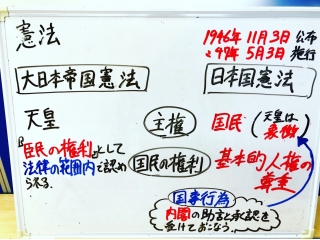 憲法
1946年 11月3日 公布
〃 47年 5月3日 施行
大日本帝国憲法
日本国憲法
天皇
主権
国民 (天皇は象徴)
「臣民の権利」として
法律の範囲内で認め
られる。
国民の権利
基本的人権の
尊重
国事行為
内閣の助言と承認を
受けておこなう。